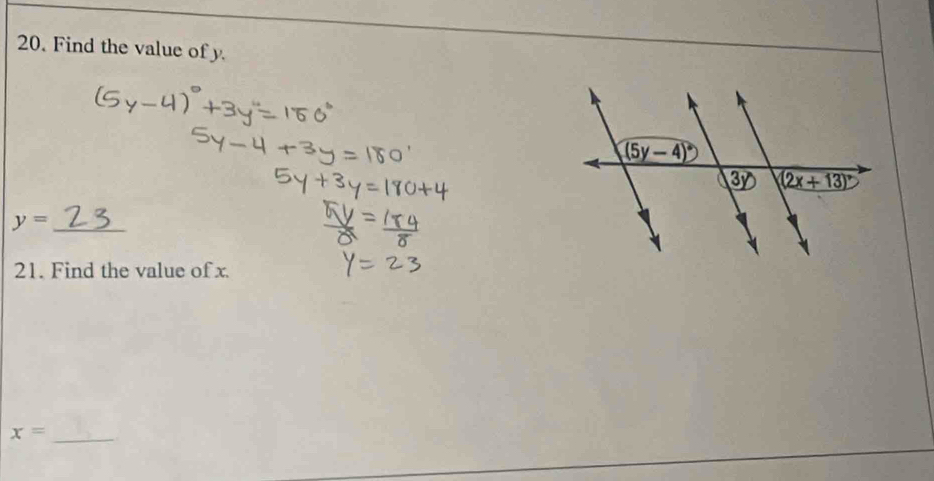 20. Find the value of y.
(5y-4)°+3y°=180°
5y-4+3y=180°
5y+3y=180+4
8y/8 = 184/8
y= 23
y = 23
(5y − 4)°
3y
(2x + 13)°
21. Find the value of x.
x =